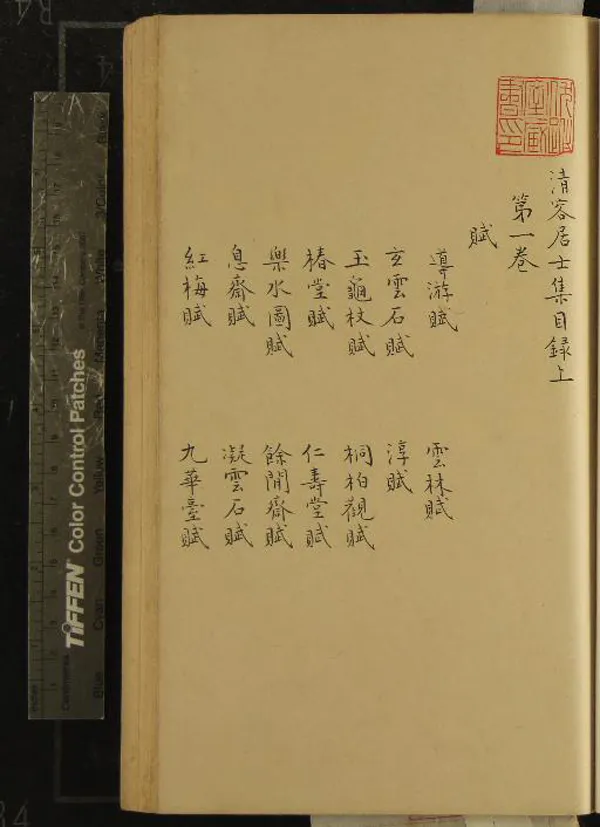 清容居士集目録上
第一卷
賦
導游賦
雲林賦
玄雲石賦
淳賦
玉龜杖賦
桐柏觀賦
椿堂賦
仁壽堂賦
樂水圖賦
餘閒齋賦
息齋賦
凝雲石賦
紅梅賦
九華臺賦
TIFFEN Color Control Patches
Blue Cyan Green Yellow Red Magenta White 3/Color Black
Centimetres
Inches